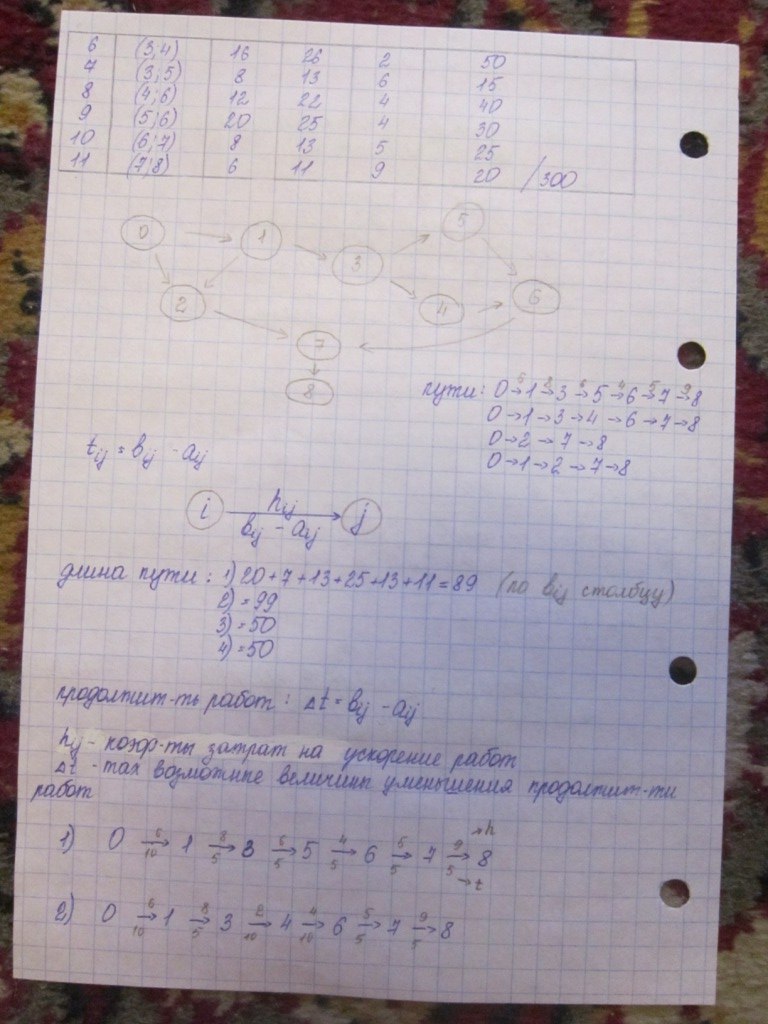 6 (3;4) 16 26 2 50
7 (3;5) 8 13 6 15
8 (4;6) 12 22 4 40
9 (5;6) 20 25 4 30
10 (6;7) 8 13 5 25
11 (7;8) 6 11 9 20 /300
0 1 3 5
2 4 6
7
8
пути: 0→1→3→5→6→7→8
6 8 6 4 5 9
0→1→3→4→6→7→8
0→2→7→8
0→1→2→7→8
tij = bij - aij
i hij j
bij - aij
длина пути: 1) 20+7+13+25+13+11=89 (по bij столбцу)
2) =99
3) =50
4) =50
продолжит-ть работ: Δt = bij - aij
hij - коэф-ты затрат на ускорение работ
Δt - max возможные величины уменьшения продолжит-ти
работ
→h
6 8 6 4 5 9
1) 0 → 1 → 3 → 5 → 6 → 7 → 8
10 5 5 5 5 5 →t
6 8 2 4 5 9
2) 0 → 1 → 3 → 4 → 6 → 7 → 8
10 5 10 10 5 5